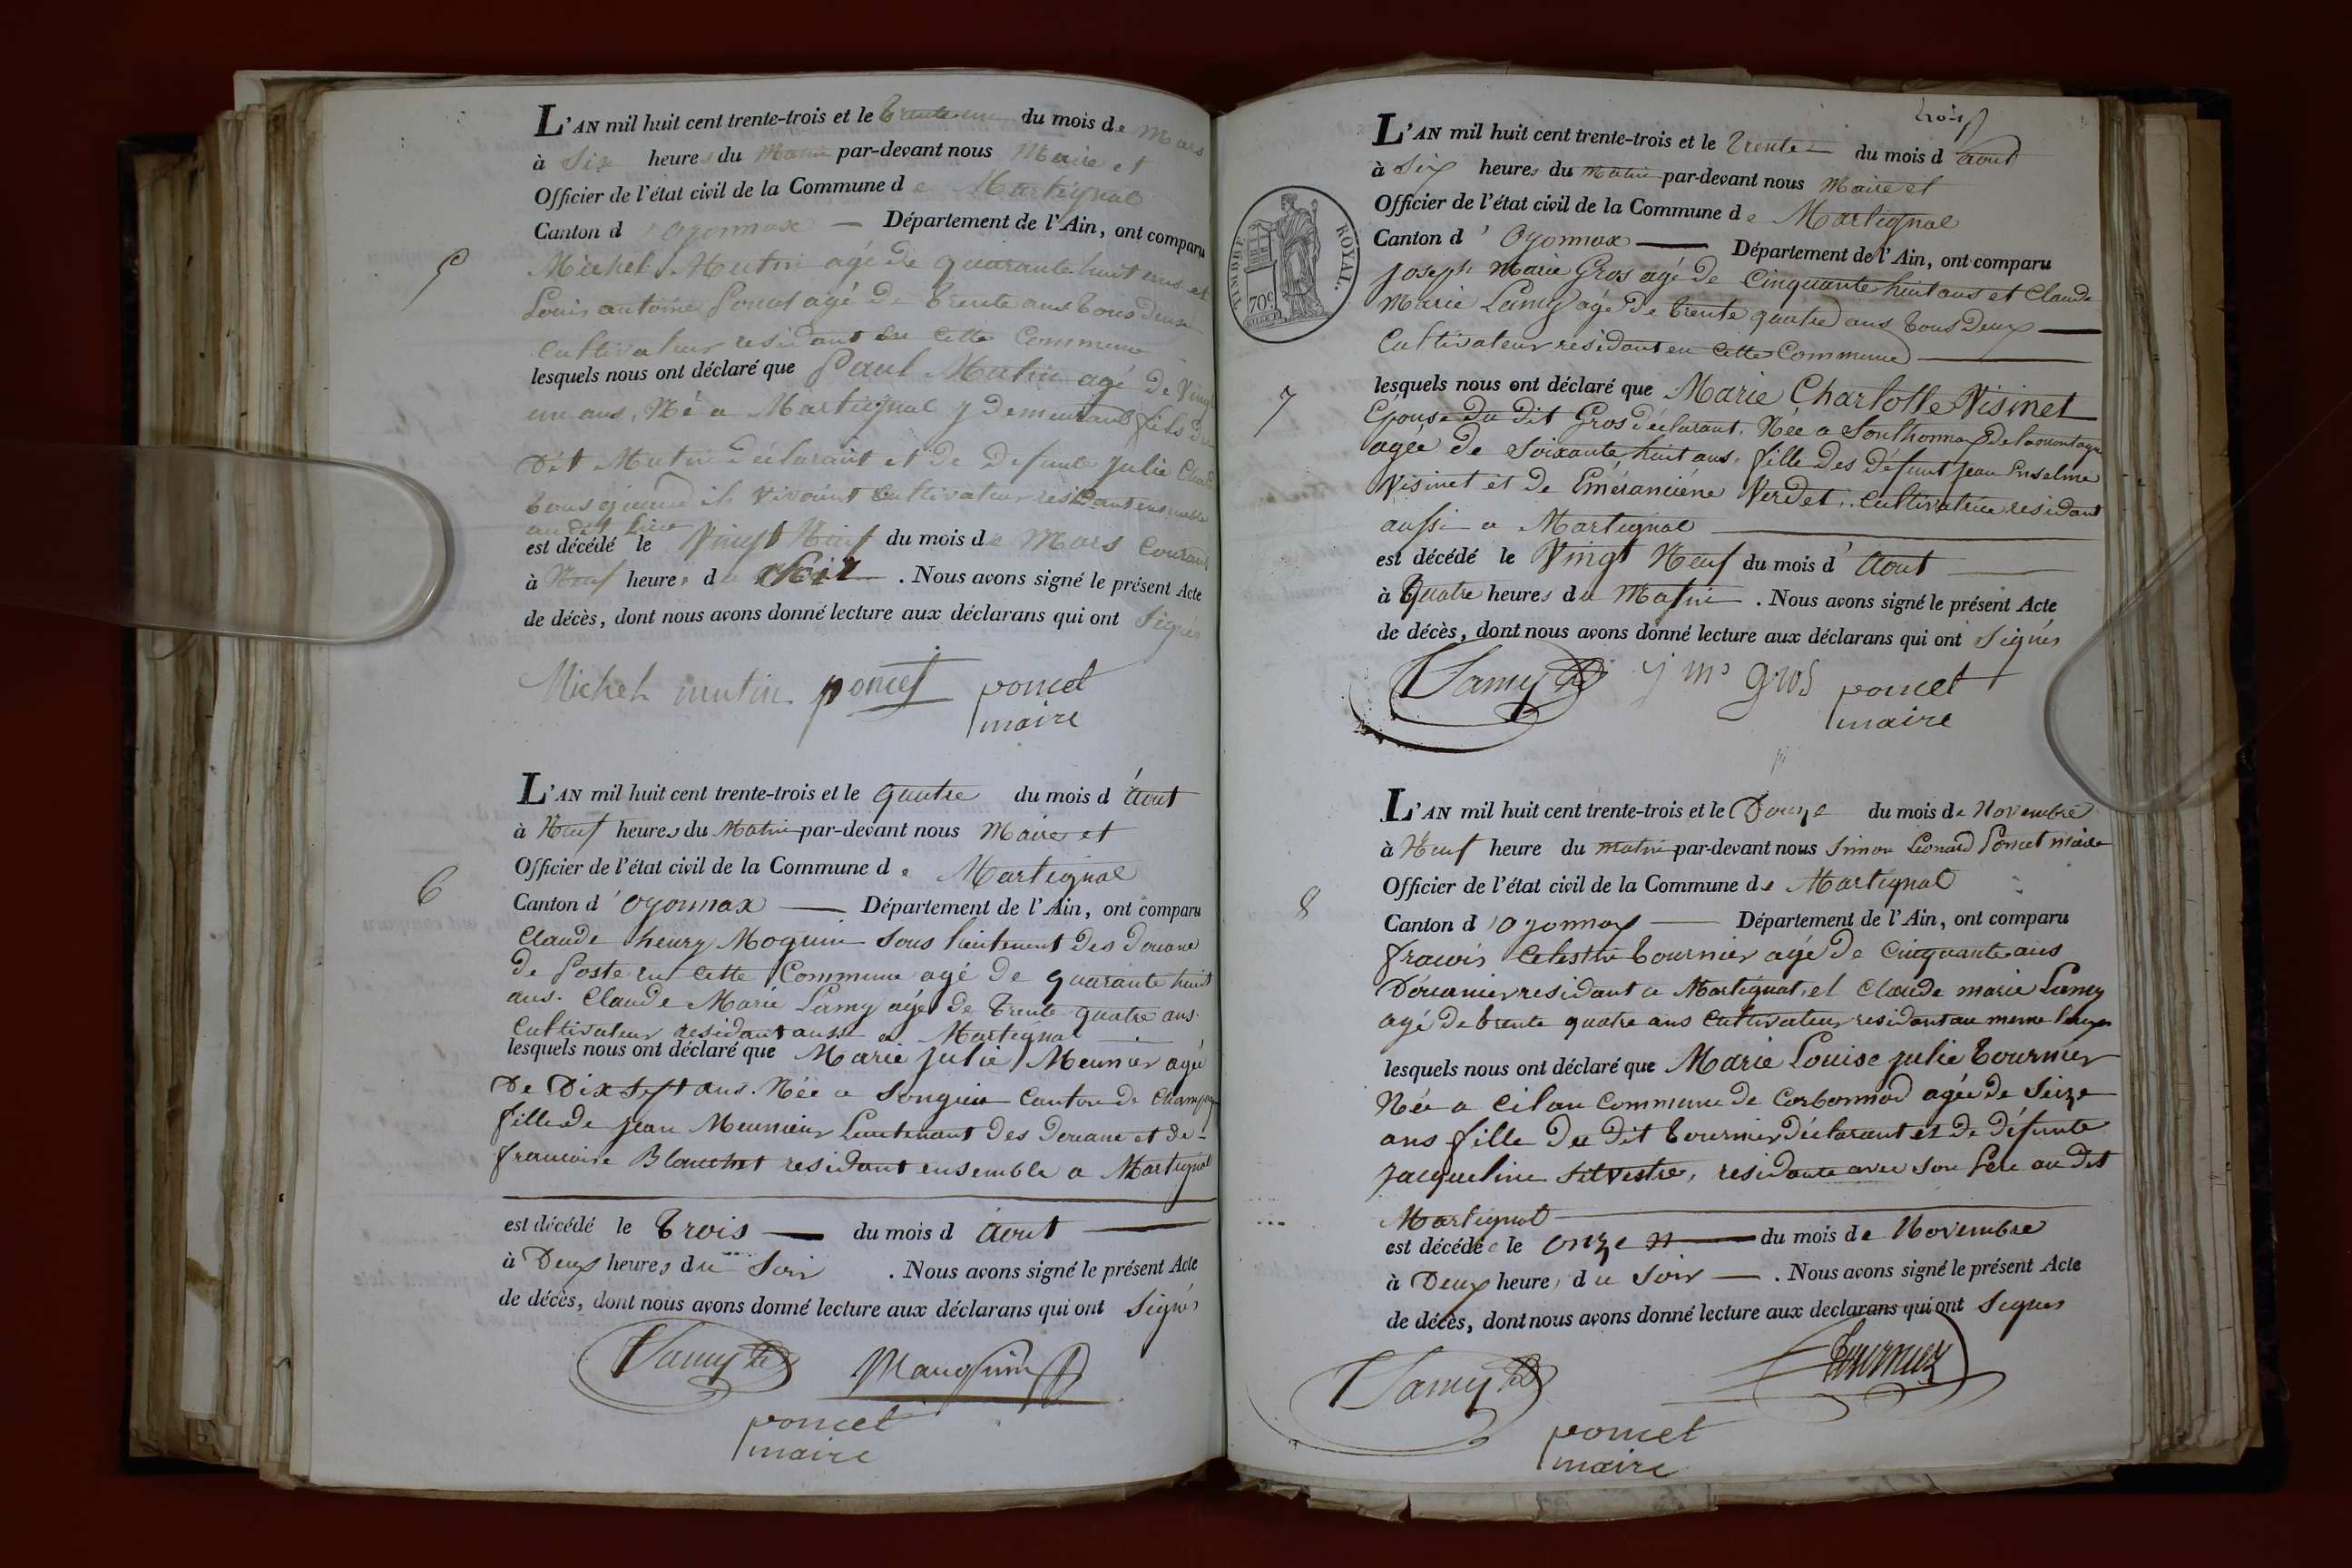 L'AN mil huit cent trente-trois et le trente un du mois de Mars
à Six heures du Matin par-devant nous Maire et
Officier de l'état civil de la Commune de Martignat
Canton d'Oyonnax — Département de l'Ain, ont comparu
5
Michel Mutin agé de quarante huit ans et
Louis antoine Poncet agé de trente ans tous deux
Cultivateur residant en Cette Commune
lesquels nous ont déclaré que Paul Mutin agé de Vingt
un ans, Né a Martignat y demeurant fils du
Dit Mutin Déclarant et de Defunte Julie
tous quand ils vivoient Cultivateur residant ensemble
au dit lieu
est décédé le Vingt Neuf du mois de Mars Courant
à Neuf heures du Soir . Nous avons signé le présent Acte
de décès, dont nous avons donné lecture aux déclarans qui ont Signés
Michel mutin poncet poncet
maire
L'AN mil huit cent trente-trois et le quatre du mois d'Aout
à Neuf heures du Matin par-devant nous Maire et
Officier de l'état civil de la Commune de Martignat
6
Canton d'Oyonnax — Département de l'Ain, ont comparu
Claude henry Moquin Sous lieutenent des Douane
de Poste en Cette Commune agé de quarante huit
ans. Claude Marie Lamy agé de trente quatre ans.
Cultivateur residant aussi a Martignat
lesquels nous ont déclaré que Marie Julie Meunier agée
De Dix Sept ans. Née a Songieu Canton de
fille de Jean Meunier Lieutenant des Douane et de
francoise Blanchet residant ensemble a Martignat
est décédé le trois — du mois d Aout
à Deux heures du Soir . Nous avons signé le présent Acte
de décès, dont nous avons donné lecture aux déclarans qui ont Signés
Lamy Mauquin
poncet
maire
trois
L'AN mil huit cent trente-trois et le trente du mois d aout
à Six heures du Matin par-devant nous Maire et
Officier de l'état civil de la Commune de Martignat
Canton d'Oyonnax — Département de l'Ain, ont comparu
TIMBRE ROYAL.
70c
Joseph Marie Gros agé de Cinquante huit ans et Claude
Marie Lamy agé de trente quatre ans tous Deux —
Cultivateur residant en Cette Commune —
7
lesquels nous ont déclaré que Marie Charlotte Visinet
Epouse du dit Gros déclarant. Née a Sonthonnax De la montagne
agée de Soixante huit ans, fille des défunt Jean Enselme
Visinet et de Eméranciéne Verdet. Cultivatrice residant
aussi a Martignat
est décédé le Vingt Neuf du mois d'Aout
à Quatre heures du Matin . Nous avons signé le présent Acte
de décès, dont nous avons donné lecture aux déclarans qui ont Signés
Lamy j m gros poncet
maire
L'AN mil huit cent trente-trois et le Douze du mois de Novembre
à Neuf heure du matin par-devant nous Simon Léonard Poncet Maire
Officier de l'état civil de la Commune de Martignat
8
Canton d'Oyonnax — Département de l'Ain, ont comparu
francois Celestin tournier agé de Cinquante ans
Douanier residant a Martignat, et Claude marie Lamy
agé de trente quatre ans Cultivateur residant au meme lieu
lesquels nous ont déclaré que Marie Louise Julie tournier
Née a Cilan Commune de Corbonnod agée de Seize
ans fille du dit tournier Déclarant et de défunte
Jacqueline Silvestre, residante avec son Père au dit
Martignat
est décédée le onze du mois de Novembre
à Deux heures du Soir — . Nous avons signé le présent Acte
de décès, dont nous avons donné lecture aux declarans qui ont Signés
Lamy Tournier
poncet
maire